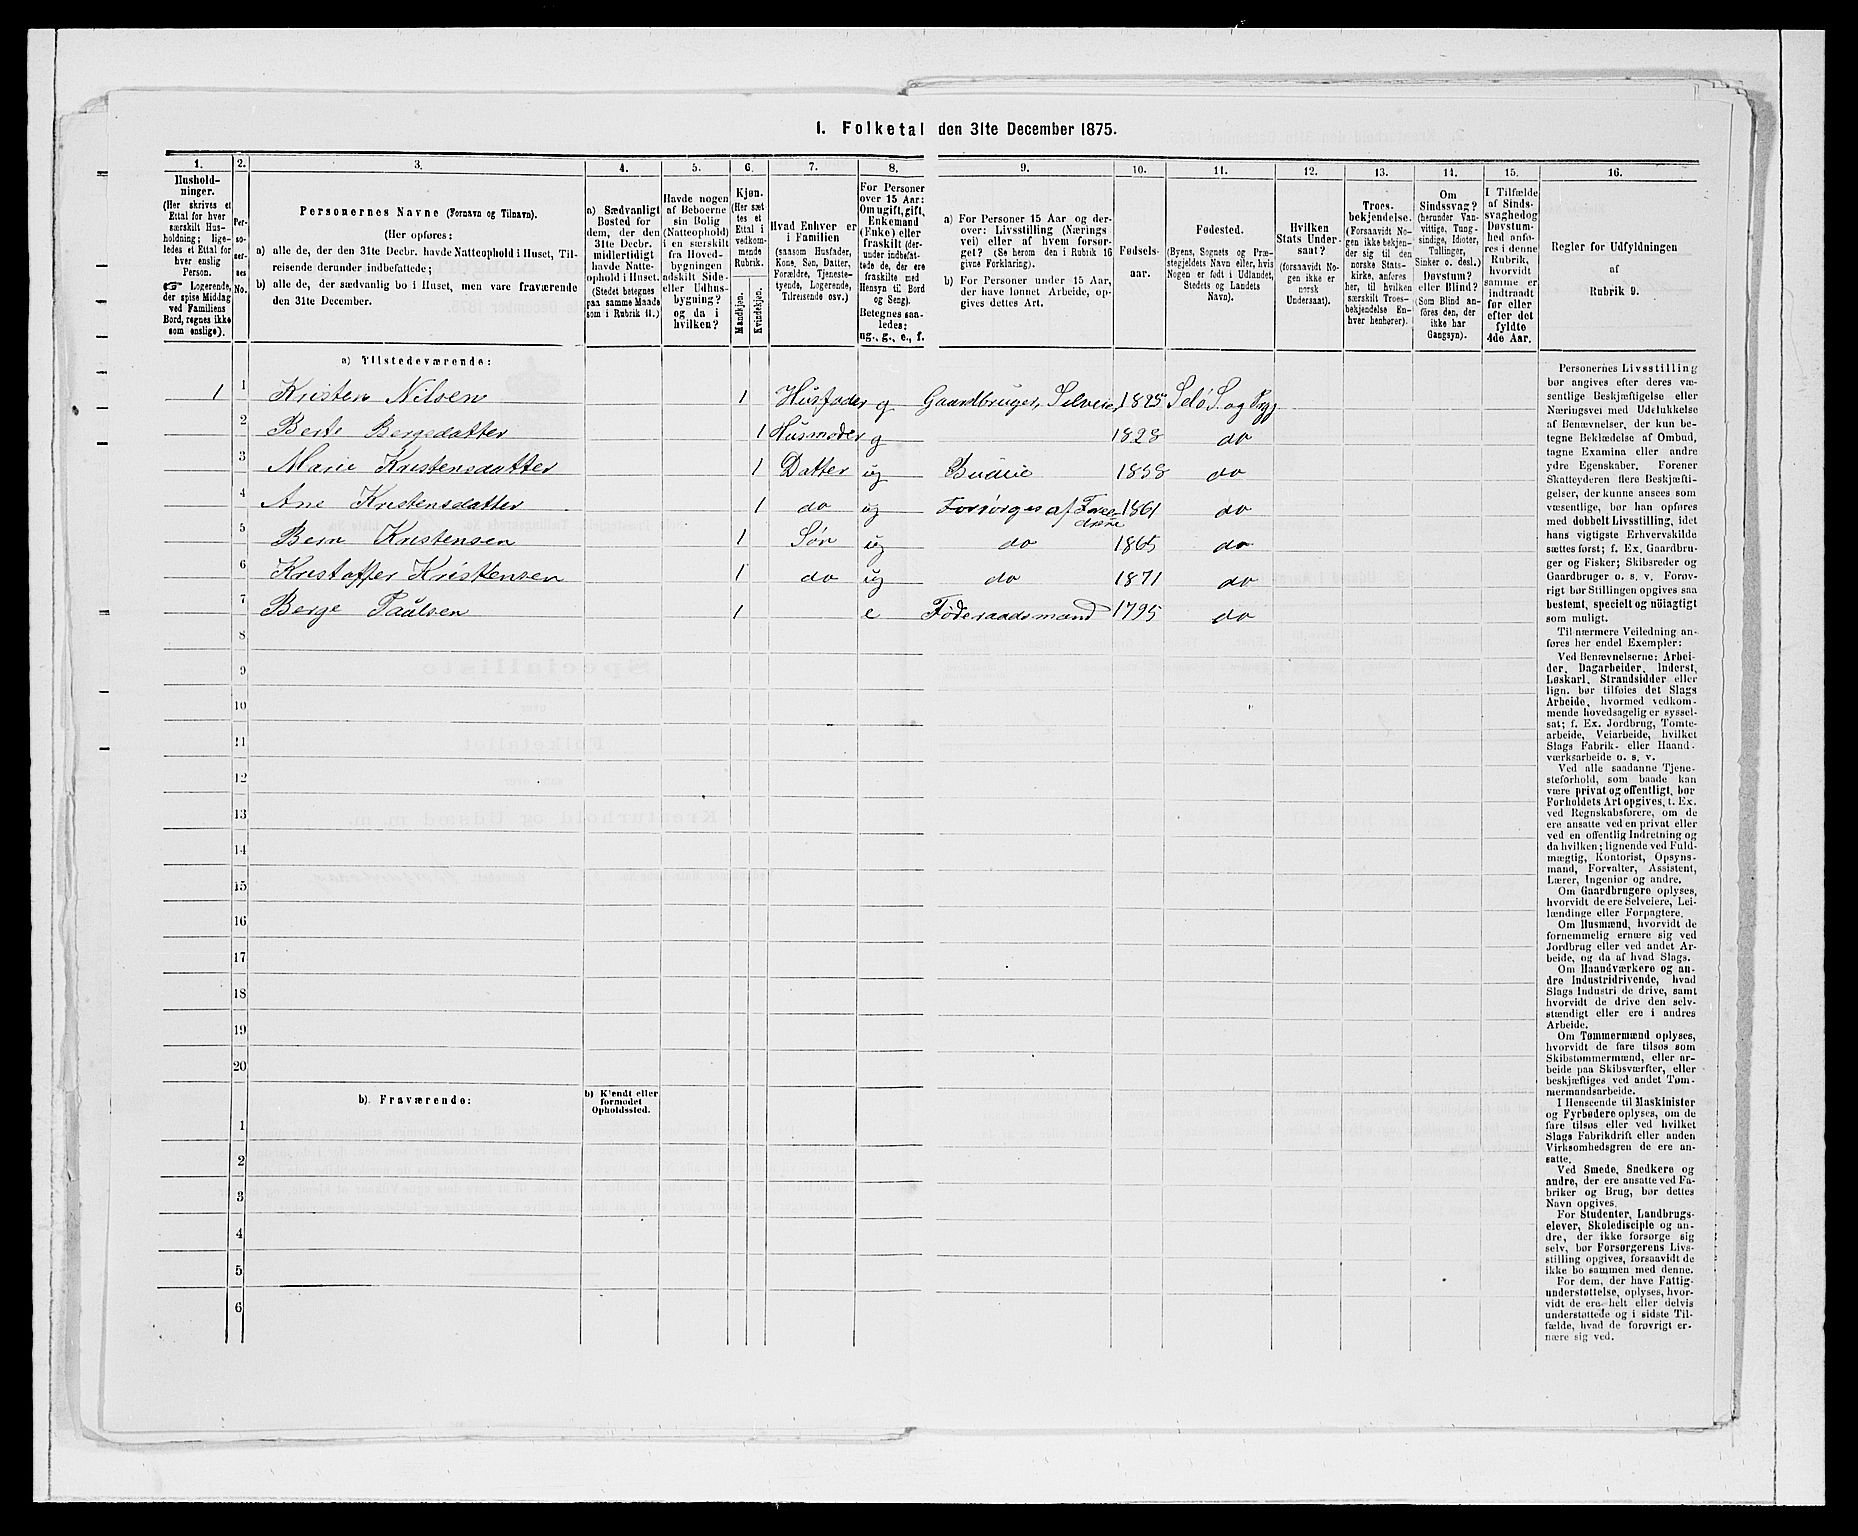 I. Folketal den 31te December 1875.
1. 2. 3. 4. 5. 6. 7. 8. 9. 10. 11. 12. 13. 14. 15. 16.
Hushold-
ninger.
(Her skrives et
Ettal for hver
særskilt Hus-
holdning; lige-
ledes et Ettal for
hver enslig
Person.
☞ Logerende,
der spise Middag
ved Familiens
Bord, regnes ikke
som enslige).
Per-
so-
ner-
nes
No.
Personernes Navne (Fornavn og Tilnavn).
(Her opføres:
a) alle de, der den 31te Decbr. havde Natteophold i Huset, Til-
reisende derunder indbefattede;
b) alle de, der sædvanlig bo i Huset, men vare fraværende
den 31te December.
a) Sædvanligt
Bosted for
dem, der den
31te Decbr.
midlertidigt
havde Natte-
ophold i Huset.
(Stedet betegnes
paa samme Maade
som i Rubrik 11.)
Havde nogen
af Beboerne
sin Bolig
(Natteophold)
i en særskilt
fra Hoved-
bygningen
adskilt Side-
eller Udhus-
bygning?
og da i
hvilken?
Kjøn.
(Her sæt-
tes et
Ettal i
vedkom-
mende
Rubrik.
Mandkjøn.
Kvindekjøn.
Hvad Enhver er
i Familien
(saasom Husfader,
Kone, Søn, Datter,
Forældre, Tjeneste-
tyende, Logerende,
Tilreisende osv.)
For Personer
over 15 Aar:
Om ugift, gift,
Enkemand
(Enke) eller
fraskilt (der-
under indbefat-
tede de, der ere
fraskilte med
Hensyn til Bord
og Seng).
Betegnes saa-
ledes:
ug., g., e., f.
a) For Personer 15 Aar og der-
over: Livsstilling (Nærings
vei) eller af hvem forsør-
get? (Se herom den i Rubrik 16
givne Forklaring).
b) For Personer under 15 Aar,
der have lønnet Arbeide, op-
gives dettes Art.
Fødsels-
aar.
Fødested.
(Byens, Sognets og Præ-
stegjeldets Navn eller, hvis
Nogen er født i Udlandet,
Stedets og Landets
Navn).
Hvilken
Stats Under-
saat?
(forsaavidt No-
gen ikke er
norsk
Undersaat).
Troes-
bekjendelse.
(Forsaavidt No-
gen ikke bekjen-
der sig til den
norske Stats-
kirke, anføres
her, til hvilken
særskilt Troes-
bekjendelse En-
hver henhører).
Om
Sindssvag?
(herunder Van-
vittige, Tung-
sindige, Idioter,
Tullinger,
Sinker o. desl.)
Døvstum?
eller Blind?
(Som Blind an-
føres den, der
ikke har
Gangsyn).
I Tilfælde
af Sinds-
svaghed og
Døvstum-
hed anfø-
res i denne
Rubrik,
hvorvidt
samme er
indtraadt
før eller
efter det
fyldte
4de Aar.
Regler for Udfyldningen
af
Rubrik 9.
a) Tilstedeværende:
1 1 Kristen Nilsen 1 Husfader g Gaardbruger, Selveier 1825 Selø S. og
2 Berte Bergedatter 1 Husmoder g 1828 do
3 Marie Kristensdatter 1 Datter ug Budeie 1858 do
4 Ane Kristensdatter 1 do ug Forsørges af Foræl-
drene 1861 do
5 Bern Kristensen 1 Søn ug do 1865 do
6 Kristoffer Kristensen 1 do ug do 1871 do
7 Berge Paulsen 1 e Føderaadsmand 1795 do
8
9
10
11
12
13
14
15
16
17
18
19
20
b) Fraværende:
b) Kjendt eller
formodet
Opholdssted.
1
2
3
4
5
6
Personernes Livsstilling
bør angives efter deres væ-
sentlige Beskjæftigelse eller
Næringsvei med Udelukkelse
af Benævnelser, der kun be-
tegne Beklædelse af Ombud,
tagne Examina eller andre
ydre Egenskaber. Forener
Skatteyderen flere Beskjæfti-
gelser, der kunne ansees som
væsentlige, bør han opføres
med dobbelt Livsstilling, idet
hans vigtigste Erhvervskilde
sættes først; f. Ex. Gaardbru-
ger og Fisker; Skibsreder og
Gaardbruger o. s. v. Forøv-
rigt bør Stillingen opgives saa
bestemt, specielt og nöiagtigt
som muligt.
Til nærmere Veiledning an-
føres her endel Exempler:
Ved Benævnelserne: Arbei-
der, Dagarbeider, Inderst,
Løskarl, Strandsidder eller
lign. bør tilføies det Slags
Arbeide, hvormed vedkom-
mende hovedsagelig er syssel-
sat; f. Ex. Jordbrug, Tomte-
arbeide, Veiarbeide, hvilket
Slags Fabrik- eller Haand-
værksarbeide o. s. v.
Ved alle saadanne Tjene-
steforhold, som baade kan
være privat og offentligt, bør
Forholdets Art opgives, t. Ex.
ved Regnskabsførere, om de
ere ansatte ved en privat eller
ved en offentlig Indretning og
da hvilken; lignende ved Fuld-
mægtig, Kontorist, Opsyns-
mand, Forvalter, Assistent,
Lærer, Ingeniør og andre.
Om Gaardbrugere oplyses,
hvorvidt de ere Selveiere, Lei-
lændinge eller Forpagtere.
Om Husmænd, hvorvidt de
fornemmelig ernære sig ved
Jordbrug eller ved andet Ar-
beide, og da af hvad Slags.
Om Haandværkere og an-
dre Industridrivende, hvad
Slags Industri de drive, samt
hvorvidt de drive den selv-
stændigt eller ere i andres
Arbeide.
Om Tømmermænd oplyses,
hvorvidt de fare tilsøs som
Skibstømmermænd, eller ar-
beide paa Skibsværfter, eller
beskjæftiges ved andet Tøm-
mermandsarbeide.
I Henseende til Maskinister
og Fyrbødere oplyses, om de
fare tilsøs eller ved hvilket
Slags Fabrikdrift eller anden
Virksomhedsgren de ere an-
satte.
Ved Smede, Snedkere og
andre, der ere ansatte ved Fa-
briker og Brug, bør dettes
Navn opgives.
For Studenter, Landbrugs-
elever, Skoledisciple og an-
dre, der ikke forsørge sig
selv, bør Forsørgerens Livs-
stilling opgives, forsaavidt de
ikke bo sammen med denne.
For dem, der have Fattig-
understøttelse, oplyses, hvor-
vidt de ere helt eller delvis
understøttede og i sidste Til-
fælde, hvad de forøvrigt er-
nære sig ved.